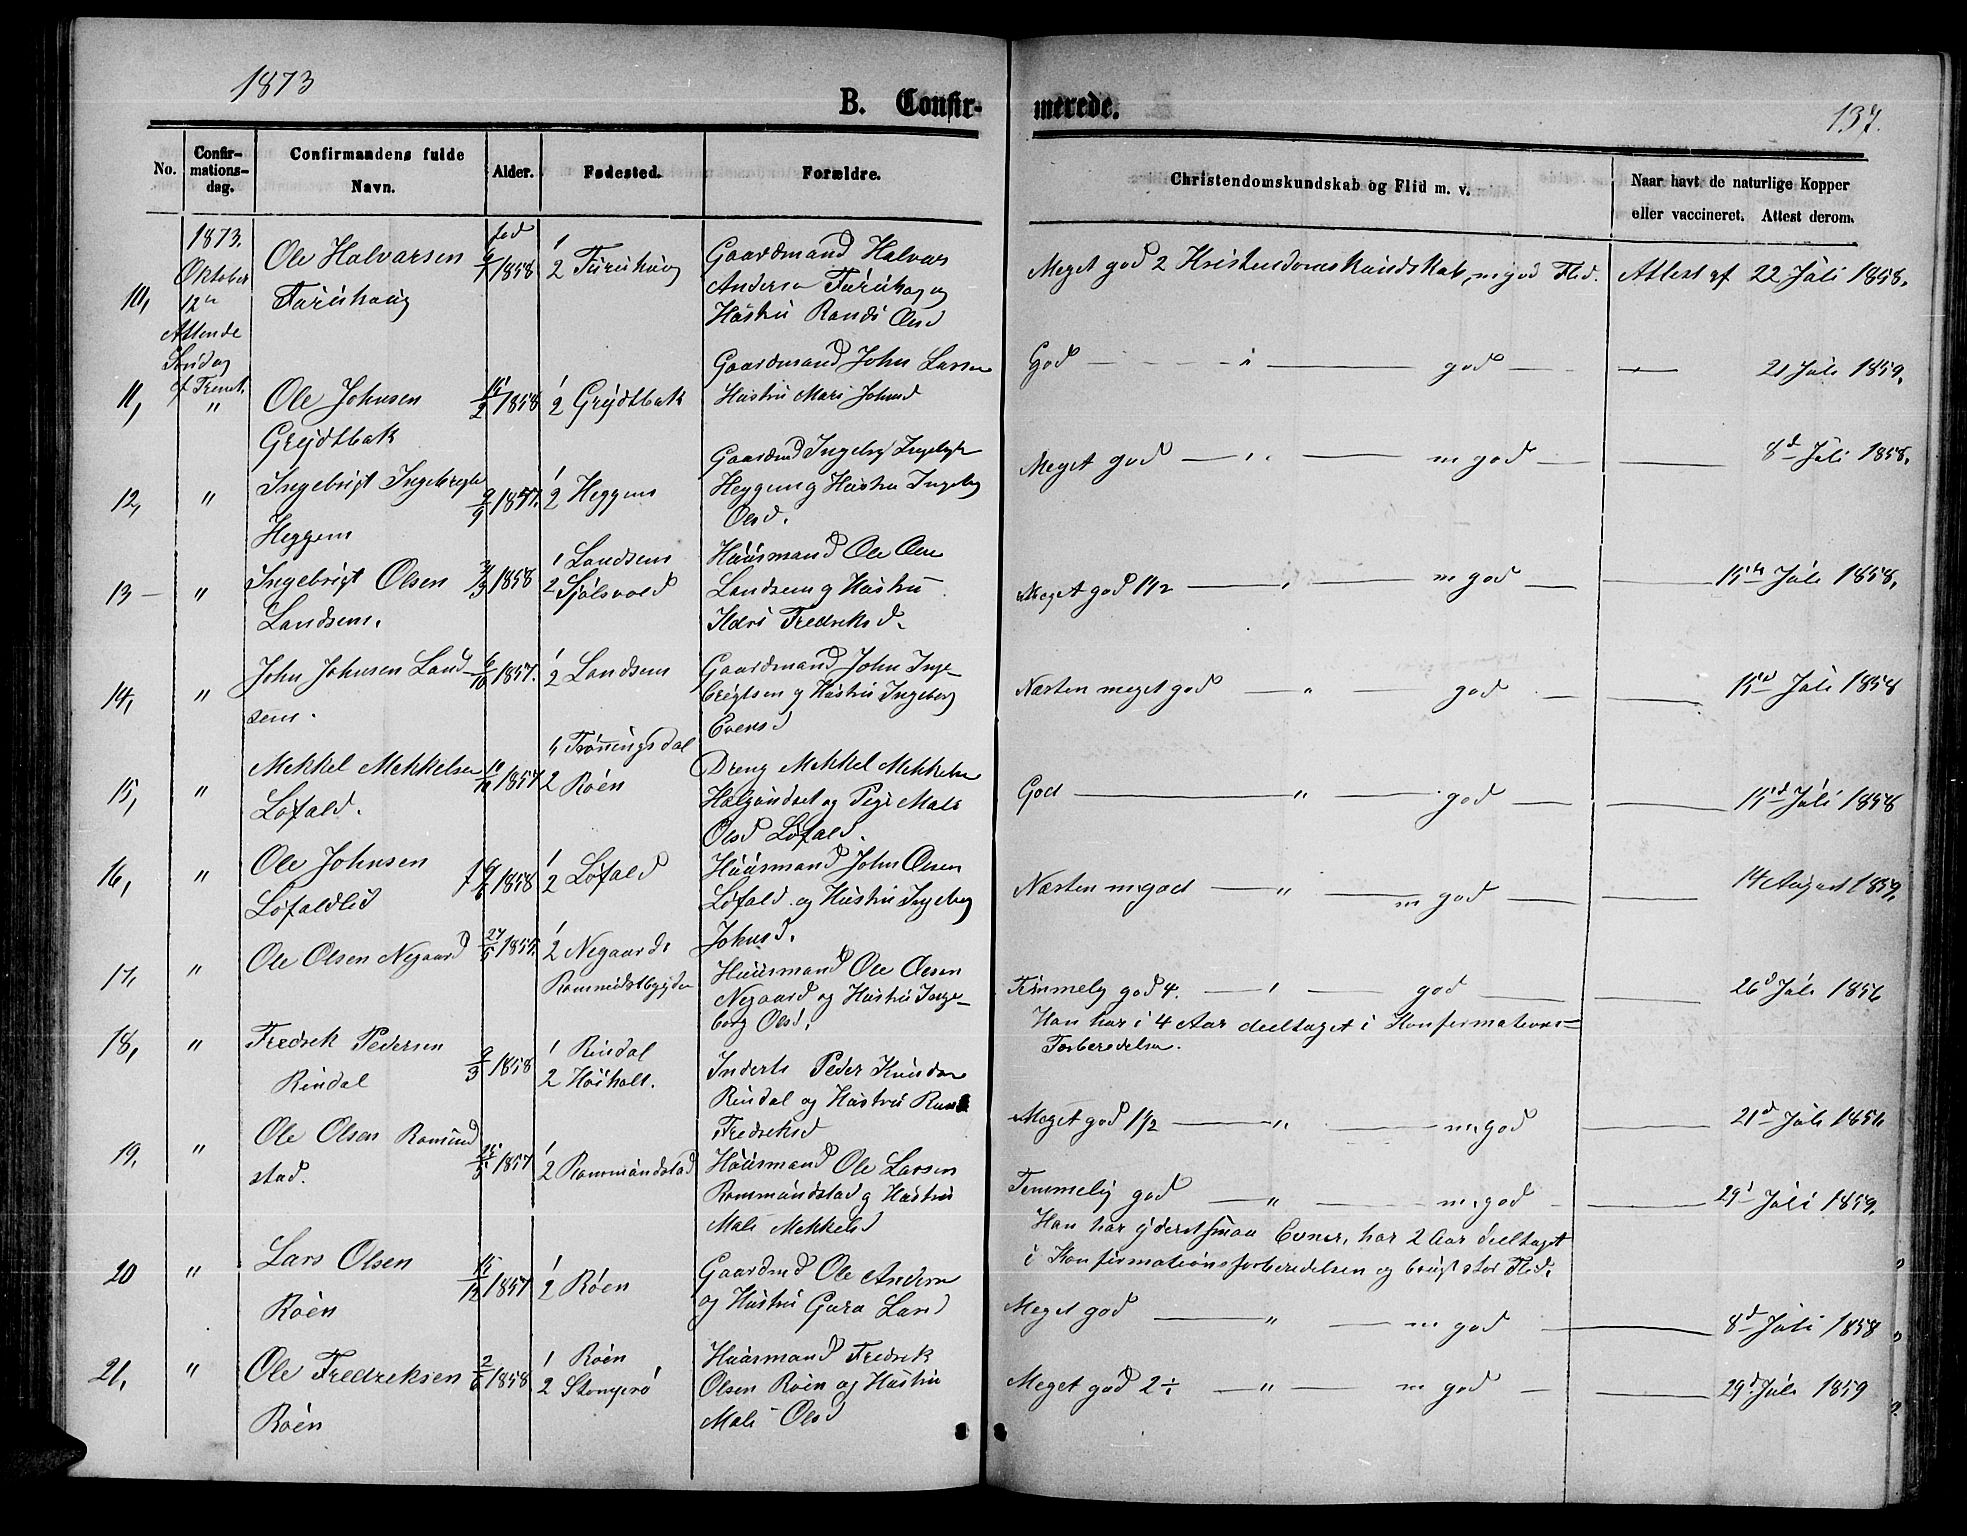 1873
B. Confir-
merede.
137.
No.
Confir-
mations-
dag.
Confirmandens fulde
Navn.
Alder.
Fødested.
Forældre.
Christendomskundskab og Flid m. v.
Naar havt de naturlige Kopper
eller vaccineret. Attest derom.
1873.
Oktober
12te
Attende
Søndag
ef Trinit.
10, Ole Halvarsen
Furuhaug
fød
1858
1
2 Furuhaug
Gaardmand Halvar
Anderse Furuhag og
Hustru Randi Olsd
Meget god 2 Kristendomskundskab, m god Flid. Attest af 22 Juli 1858.
11, " Ole Johnsen
Grejdtbak
15/2 1858
1
2 Grejdtbak
Gaardmand John Larsen
Hustru Mari Johnsd
God — " — god — 21 Juli 1859.
12, " Ingebrigt Ingebrigts
Heggem
2/9 1857.
1
2 Heggem
Gaardmd Ingebrigt
Heggem og Hustru Ingebrg
Olsd.
Meget god — " — m god — 8d Juli 1858.
13 — " Ingebrigt Olsen
Landsem.
1858
1 Landsem
2 Sjølsvold
Huusmand Ole Olsen
Landsem og Hustru
Ildri Fredriksd.
Meget god 1 1/2 — " — m god — 15de Juli 1858.
14, " John Johnsen Land-
sem.
6/10 1857.
1
2 Landsem
Gaardmand John Inge-
brigtsen og Hustru Ingeborg
Evensd
Næsten meget god — " — god — 15d Juli 1858
15, " Mekkel Mekkelsen
Løfald.
1857
1 Trønningsdal
2 Røen
Dreng Mekkel Mekkelsen
Halgundset og Pige Mali
Olsd Løfald.
God — " — god — 15d Juli 1858
16, " Ole Johnsen
Løfaldlid
1858
1
2 Løfald
Huusmand John Olsen
Løfald og Hustru Ingebrg
Johnsd.
Næsten m god — " — m god — 14 August 1859.
17, " Ole Olsen Negaard
27/5 1855.
1
2 Negaard
Rommundstbygden
Huusmand Ole Olsen
Negaard og Hustru Inge-
borg Olsd.
Temmelig god 4. — " — god — 26d Juli 1856
Han har i 4 Aar deeltaget i Konfirmations=
Forberedelsen.
18, " Fredrek Pedersen
Rindal
9/3 1858
1 Rindal
2 Høiholt.
Inderst Peder Knudsen
Rindal og Hustru
Fredreksd
Meget god 1 1/2 — " — m. god — 21d Juli
19, " Ole Olsen Romund
stad.
1857
1
2 Rommundstad
Huusmand Ole Larsen
Rommundstad og Hustru
Mali Mekkelsd
Temmelig god — " — m. god — 29d Juli 1859.
Han har yderst smaa Evner, har 2 Aar deeltaget
i Konfirmationsforberedelsen og brugt stor Flid.
20 " Lars Olsen
Røen
15/12 1857
1
2 Røen
Gaardmd Ole Andersen
og Hustru Guro Larsd
Meget god — " — m god — 8d Juli 1858
21, " Ole Fredreksen
Røen
1858
1 Røen
2 Stomperø
Huusmand Fredrek
Olsen Røen og Hustru
Mali Olsd
Meget god 2 — " — m god — 29d Juli 1859